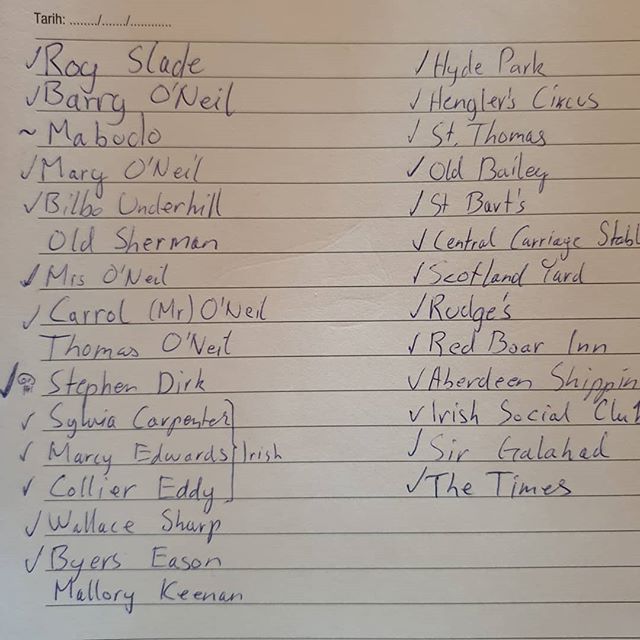 Tarih: ......../......./............
✓Roy Slade
✓Barry O'Neil
~ Mabuclo
✓Mary O'Neil
✓Bilbo Underhill
Old Sherman
✓Mrs O'Neil
✓Carrol (Mr) O'Neil
Thomas O'Neil
✓Stephen Dirk
✓Sylvia Carpenter
✓Marcy Edwards Irish
✓Collier Eddy
✓Wallace Sharp
✓Byers Eason
Mallory Keenan
✓Hyde Park
✓Hengler's Circus
✓St. Thomas
✓Old Bailey
✓St Bart's
✓Central Carriage Stabl
✓Scotland Yard
✓Rudge's
✓Red Boar Inn
✓Aberdeen Shippin
✓Irish Social Clu
✓Sir Galahad
✓The Times